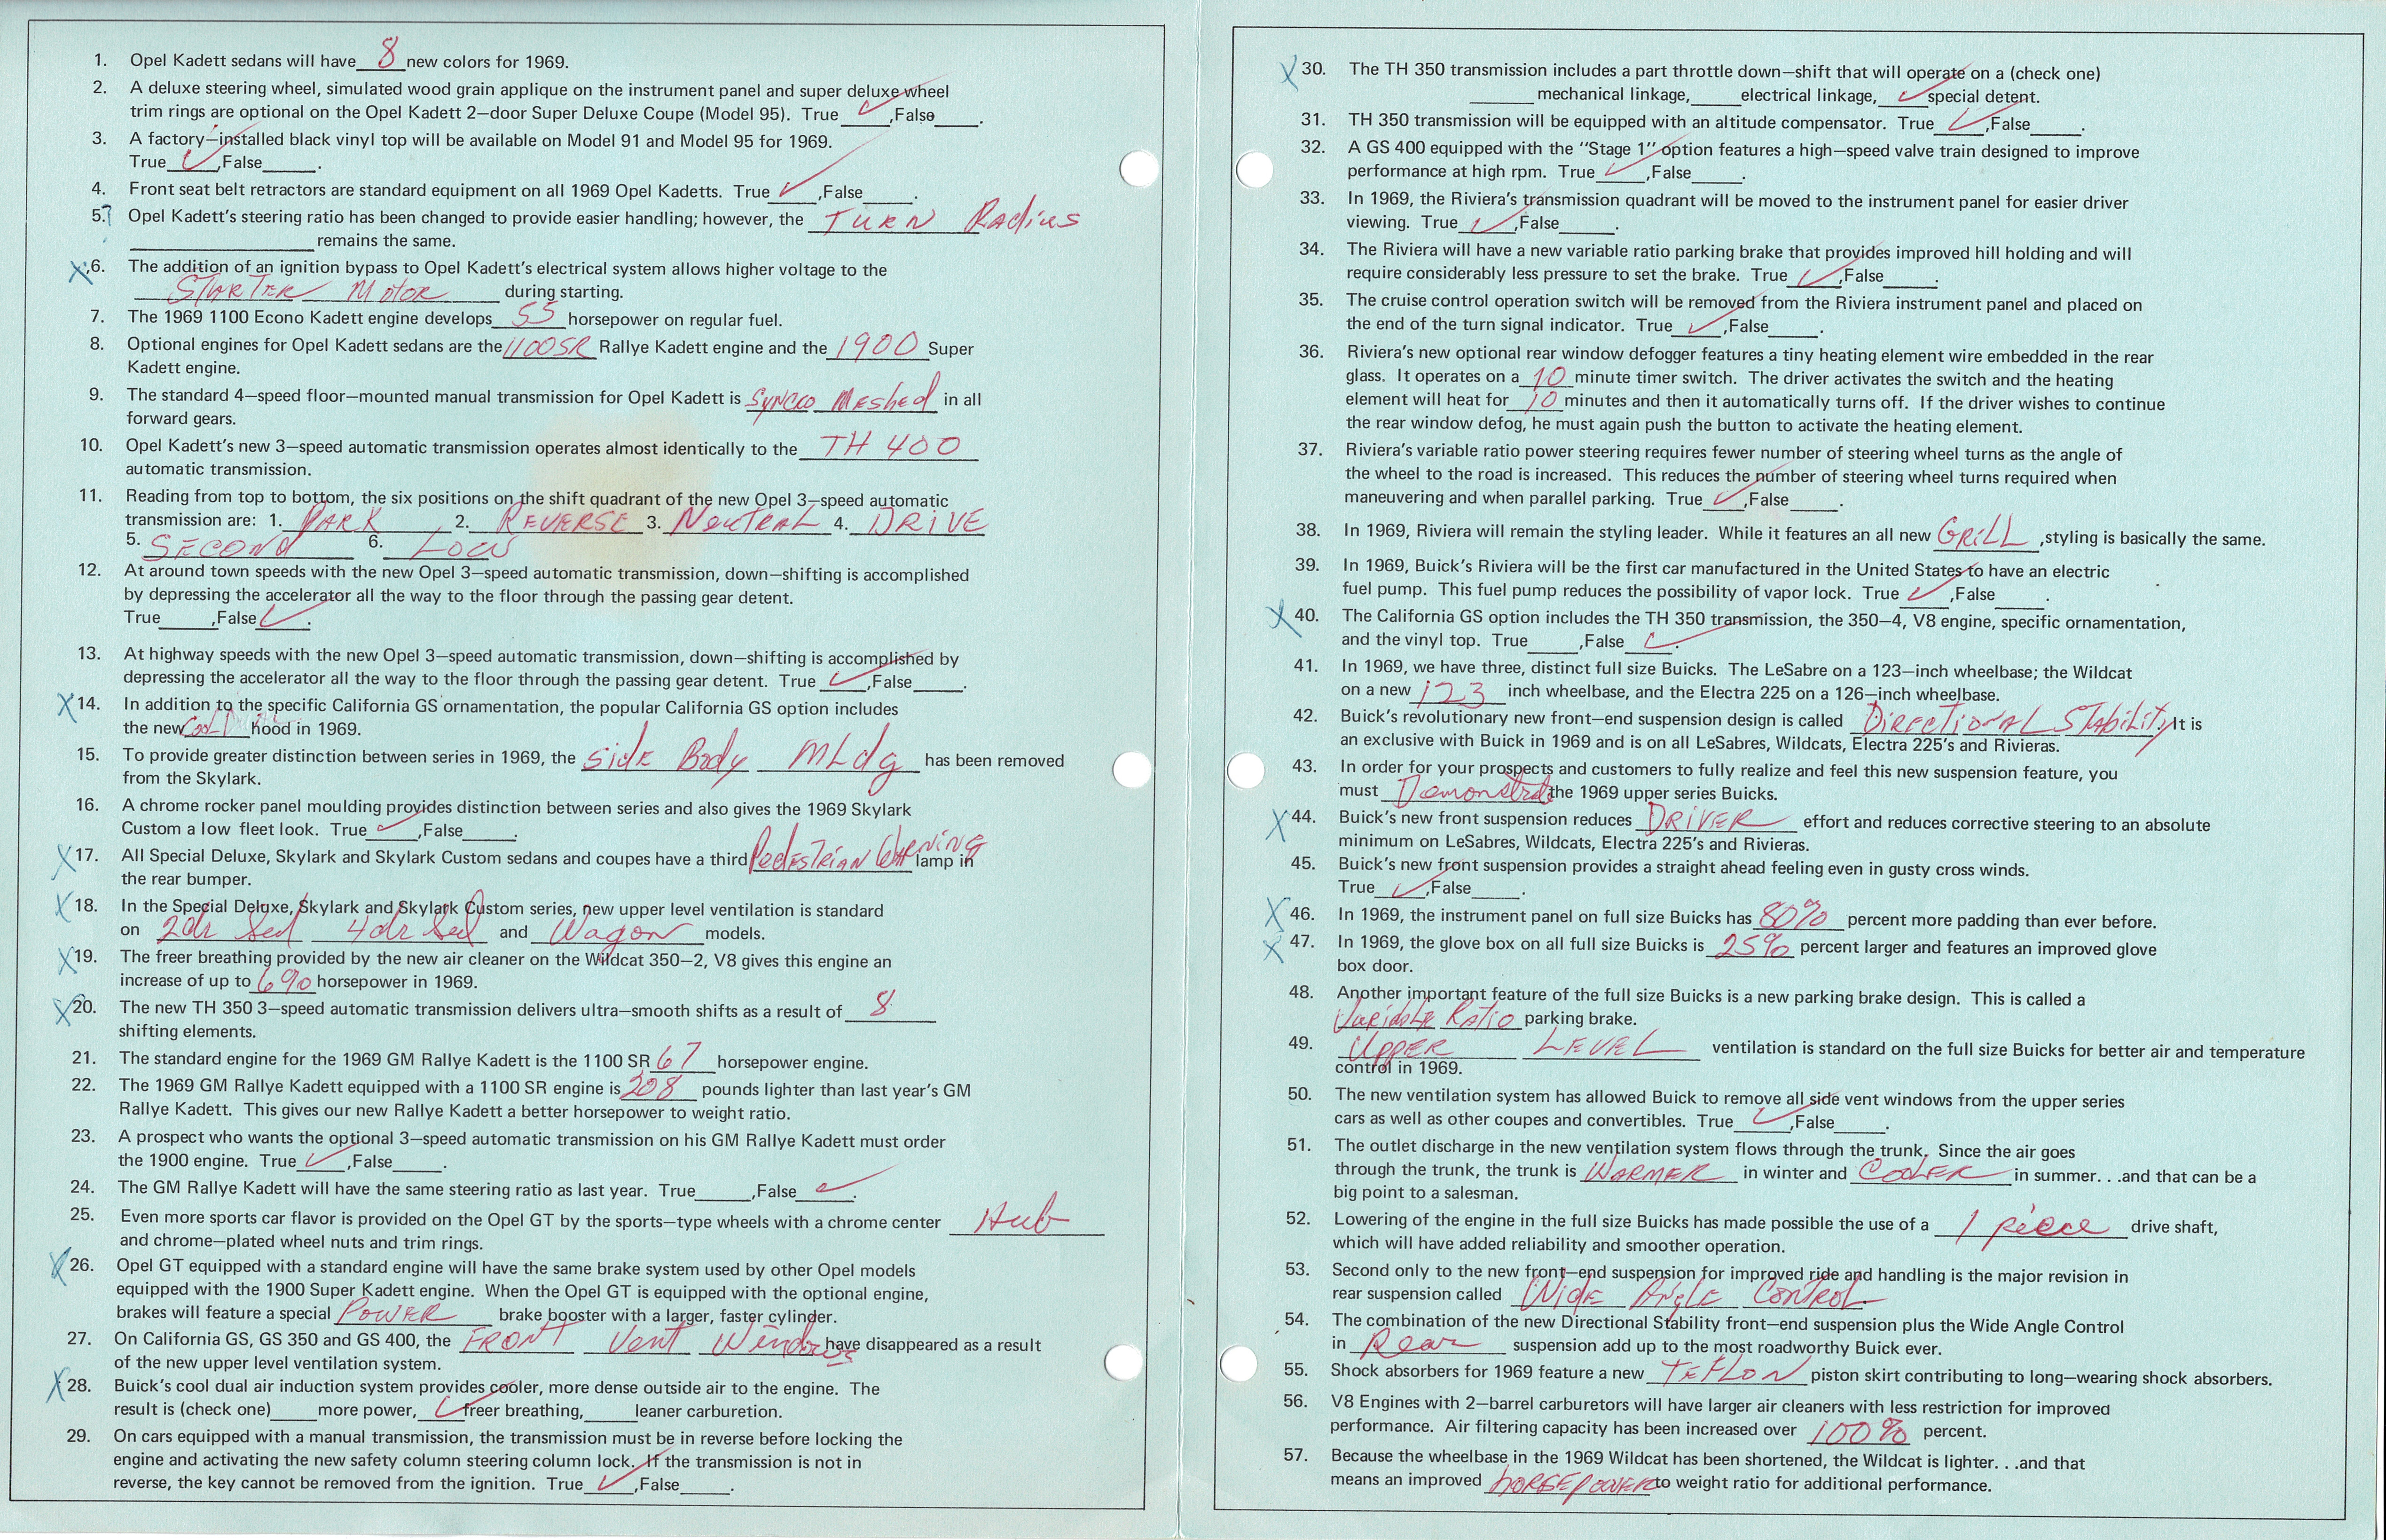 1. Opel Kadett sedans will have 8 new colors for 1969.
2. A deluxe steering wheel, simulated wood grain applique on the instrument panel and super deluxe wheel
trim rings are optional on the Opel Kadett 2—door Super Deluxe Coupe (Model 95). True ✓ ,False____.
3. A factory—installed black vinyl top will be available on Model 91 and Model 95 for 1969.
True ✓ ,False____.
4. Front seat belt retractors are standard equipment on all 1969 Opel Kadetts. True ✓ ,False____.
5.? Opel Kadett's steering ratio has been changed to provide easier handling; however, the TURN Radius
____ remains the same.
X 6. The addition of an ignition bypass to Opel Kadett's electrical system allows higher voltage to the
STARTER MOTOR during starting.
7. The 1969 1100 Econo Kadett engine develops 55 horsepower on regular fuel.
8. Optional engines for Opel Kadett sedans are the 1100SR Rallye Kadett engine and the 1900 Super
Kadett engine.
9. The standard 4—speed floor—mounted manual transmission for Opel Kadett is SYNCRO MESHED in all
forward gears.
10. Opel Kadett's new 3—speed automatic transmission operates almost identically to the TH 400
automatic transmission.
11. Reading from top to bottom, the six positions on the shift quadrant of the new Opel 3—speed automatic
transmission are: 1. PARK 2. REVERSE 3. NEUTRAL 4. DRIVE
5. SECOND 6. LOW
12. At around town speeds with the new Opel 3—speed automatic transmission, down—shifting is accomplished
by depressing the accelerator all the way to the floor through the passing gear detent.
True____,False ✓ .
13. At highway speeds with the new Opel 3—speed automatic transmission, down—shifting is accomplished by
depressing the accelerator all the way to the floor through the passing gear detent. True ✓ ,False____.
X 14. In addition to the specific California GS ornamentation, the popular California GS option includes
the new hood in 1969.
15. To provide greater distinction between series in 1969, the side Body MLdg has been removed
from the Skylark.
16. A chrome rocker panel moulding provides distinction between series and also gives the 1969 Skylark
Custom a low fleet look. True ✓ ,False____.
X 17. All Special Deluxe, Skylark and Skylark Custom sedans and coupes have a third Pedestrian Warning lamp in
the rear bumper.
X 18. In the Special Deluxe, Skylark and Skylark Custom series, new upper level ventilation is standard
on 2dr Sed 4dr Sed and Wagon models.
X 19. The freer breathing provided by the new air cleaner on the Wildcat 350—2, V8 gives this engine an
increase of up to 6% horsepower in 1969.
X 20. The new TH 350 3—speed automatic transmission delivers ultra—smooth shifts as a result of 8
shifting elements.
21. The standard engine for the 1969 GM Rallye Kadett is the 1100 SR 67 horsepower engine.
22. The 1969 GM Rallye Kadett equipped with a 1100 SR engine is 208 pounds lighter than last year's GM
Rallye Kadett. This gives our new Rallye Kadett a better horsepower to weight ratio.
23. A prospect who wants the optional 3—speed automatic transmission on his GM Rallye Kadett must order
the 1900 engine. True ✓ ,False____.
24. The GM Rallye Kadett will have the same steering ratio as last year. True____,False ✓ .
25. Even more sports car flavor is provided on the Opel GT by the sports—type wheels with a chrome center Hub
and chrome—plated wheel nuts and trim rings.
X 26. Opel GT equipped with a standard engine will have the same brake system used by other Opel models
equipped with the 1900 Super Kadett engine. When the Opel GT is equipped with the optional engine,
brakes will feature a special POWER brake booster with a larger, faster cylinder.
27. On California GS, GS 350 and GS 400, the FRONT Vent Windows have disappeared as a result
of the new upper level ventilation system.
X 28. Buick's cool dual air induction system provides cooler, more dense outside air to the engine. The
result is (check one)____more power, ✓ freer breathing,____leaner carburetion.
29. On cars equipped with a manual transmission, the transmission must be in reverse before locking the
engine and activating the new safety column steering column lock. If the transmission is not in
reverse, the key cannot be removed from the ignition. True ✓ ,False____.
X 30. The TH 350 transmission includes a part throttle down—shift that will operate on a (check one)
____mechanical linkage,____electrical linkage, ✓ special detent.
31. TH 350 transmission will be equipped with an altitude compensator. True ✓ ,False____.
32. A GS 400 equipped with the "Stage 1" option features a high—speed valve train designed to improve
performance at high rpm. True ✓ ,False____.
33. In 1969, the Riviera's transmission quadrant will be moved to the instrument panel for easier driver
viewing. True ✓ ,False____.
34. The Riviera will have a new variable ratio parking brake that provides improved hill holding and will
require considerably less pressure to set the brake. True ✓ ,False____.
35. The cruise control operation switch will be removed from the Riviera instrument panel and placed on
the end of the turn signal indicator. True ✓ ,False____.
36. Riviera's new optional rear window defogger features a tiny heating element wire embedded in the rear
glass. It operates on a 10 minute timer switch. The driver activates the switch and the heating
element will heat for 10 minutes and then it automatically turns off. If the driver wishes to continue
the rear window defog, he must again push the button to activate the heating element.
37. Riviera's variable ratio power steering requires fewer number of steering wheel turns as the angle of
the wheel to the road is increased. This reduces the number of steering wheel turns required when
maneuvering and when parallel parking. True ✓ ,False____.
38. In 1969, Riviera will remain the styling leader. While it features an all new GRILL ,styling is basically the same.
39. In 1969, Buick's Riviera will be the first car manufactured in the United States to have an electric
fuel pump. This fuel pump reduces the possibility of vapor lock. True ✓ ,False____.
X 40. The California GS option includes the TH 350 transmission, the 350—4, V8 engine, specific ornamentation,
and the vinyl top. True____,False ✓ .
41. In 1969, we have three, distinct full size Buicks. The LeSabre on a 123—inch wheelbase; the Wildcat
on a new 123 inch wheelbase, and the Electra 225 on a 126—inch wheelbase.
42. Buick's revolutionary new front—end suspension design is called DIRECTIONAL STABILITY. It is
an exclusive with Buick in 1969 and is on all LeSabres, Wildcats, Electra 225's and Rivieras.
43. In order for your prospects and customers to fully realize and feel this new suspension feature, you
must Demonstrate the 1969 upper series Buicks.
X 44. Buick's new front suspension reduces DRIVER effort and reduces corrective steering to an absolute
minimum on LeSabres, Wildcats, Electra 225's and Rivieras.
45. Buick's new front suspension provides a straight ahead feeling even in gusty cross winds.
True ✓ ,False____.
X 46. In 1969, the instrument panel on full size Buicks has 80% percent more padding than ever before.
X 47. In 1969, the glove box on all full size Buicks is 25% percent larger and features an improved glove
box door.
48. Another important feature of the full size Buicks is a new parking brake design. This is called a
Variable Ratio parking brake.
49. UPPER LEVEL ventilation is standard on the full size Buicks for better air and temperature
control in 1969.
50. The new ventilation system has allowed Buick to remove all side vent windows from the upper series
cars as well as other coupes and convertibles. True ✓ ,False____.
51. The outlet discharge in the new ventilation system flows through the trunk. Since the air goes
through the trunk, the trunk is WARMER in winter and COOLER in summer. . .and that can be a
big point to a salesman.
52. Lowering of the engine in the full size Buicks has made possible the use of a 1 piece drive shaft,
which will have added reliability and smoother operation.
53. Second only to the new front—end suspension for improved ride and handling is the major revision in
rear suspension called Wide Angle Control
54. The combination of the new Directional Stability front—end suspension plus the Wide Angle Control
in Rear suspension add up to the most roadworthy Buick ever.
55. Shock absorbers for 1969 feature a new TEFLON piston skirt contributing to long—wearing shock absorbers.
56. V8 Engines with 2—barrel carburetors will have larger air cleaners with less restriction for improved
performance. Air filtering capacity has been increased over 100% percent.
57. Because the wheelbase in the 1969 Wildcat has been shortened, the Wildcat is lighter. . .and that
means an improved HORSEPOWER to weight ratio for additional performance.